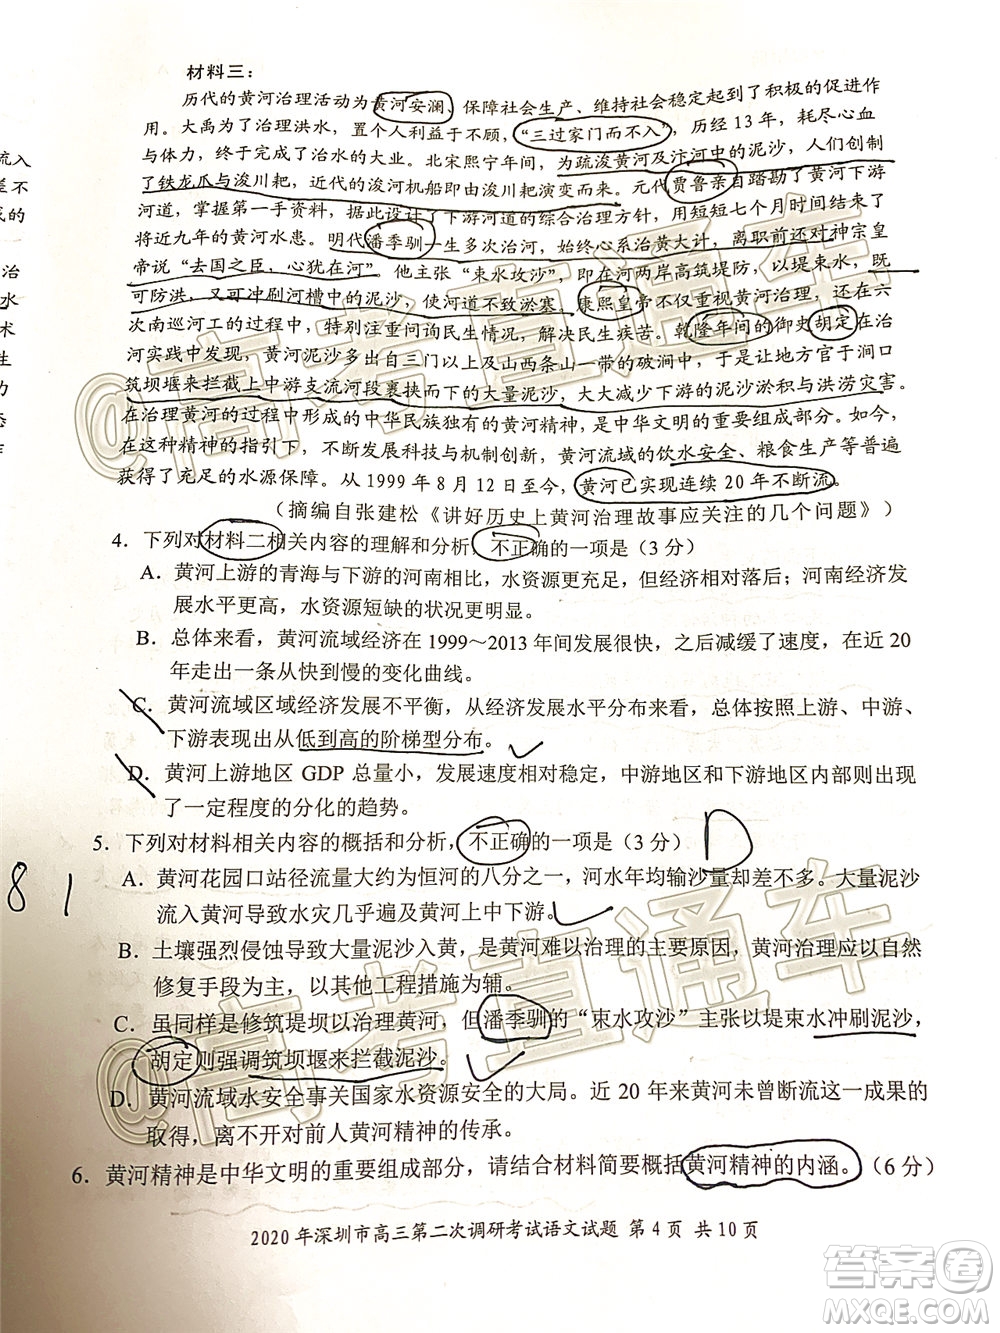 材料三：
历代的黄河治理活动为黄河安澜、保障社会生产、维持社会稳定起到了积极的促进作
用。大禹为了治理洪水，置个人利益于不顾，“三过家门而不入”，历经 13 年，耗尽心血
与体力，终于完成了治水的大业。北宋熙宁年间，为疏浚黄河及汴河中的泥沙，人们创制
了铁龙爪与浚川耙，近代的浚河机船即由浚川耙演变而来。元代贾鲁亲自踏勘了黄河下游
河道，掌握第一手资料，据此设计了下游河道的综合治理方针，用短短七个月时间结束了
将近九年的黄河水患。明代潘季驯一生多次治河，始终心系治黄大计，离职前还对神宗皇
帝说“去国之臣，心犹在河”。他主张“束水攻沙”，即在河两岸高筑堤防，以堤束水，既
可防洪，又可冲刷河槽中的泥沙，使河道不致淤塞。康熙皇帝不仅重视黄河治理，还在六
次南巡河工的过程中，特别注重询问民生情况，解决民生疾苦。乾隆年间的御史胡定在治
河实践中发现，黄河泥沙多出自三门以上及山西条山一带的破涧中，于是让地方官于涧口
筑坝堰来拦截上中游支流河段裹挟而下的大量泥沙，大大减少下游的泥沙淤积与洪涝灾害。
在治理黄河的过程中形成的中华民族独有的黄河精神，是中华文明的重要组成部分。如今，
在这种精神的指引下，不断发展科技与机制创新，黄河流域的饮水安全、粮食生产等获
得了充足的水源保障。从 1999 年 8 月 12 日至今，黄河已实现连续 20 年不断流。
（摘编自张建松《讲好历史上黄河治理故事应关注的几个问题》）
4．下列对材料二相关内容的理解和分析，不正确的一项是（3 分）
A．黄河上游的青海与下游的河南相比，水资源更充足，但经济相对落后；河南经济发
展水平更高，水资源短缺的状况更明显。
B．总体来看，黄河流域经济在 1999～2013 年间发展很快，之后减缓了速度，在近 20
年走出一条从快到慢的变化曲线。
C．黄河流域区域经济发展不平衡，从经济发展水平分布来看，总体按照上游、中游、
下游表现出从低到高的阶梯型分布。
D．黄河上游地区 GDP 总量小，发展速度相对稳定，中游地区和下游地区内部则出现
了一定程度的分化的趋势。
5．下列对材料相关内容的概括和分析，不正确的一项是（3 分） D
A．黄河花园口站径流量大约为恒河的八分之一，河水年均输沙量却差不多。大量泥沙
流入黄河导致水灾几乎遍及黄河上中下游。
8 1
B．土壤强烈侵蚀导致大量泥沙入黄，是黄河难以治理的主要原因，黄河治理应以自然
修复手段为主，以其他工程措施为辅。
C．虽同样是修筑堤坝以治理黄河，但潘季驯的“束水攻沙”主张以堤束水冲刷泥沙，
胡定则强调筑坝堰来拦截泥沙。
D．黄河流域水安全事关国家水资源安全的大局。近 20 年来黄河未曾断流这一成果的
取得，离不开对前人黄河精神的传承。
6．黄河精神是中华文明的重要组成部分，请结合材料简要概括黄河精神的内涵。（6 分）
2020 年深圳市高三第二次调研考试语文试题 第 4 页 共 10 页
@高考直通车
@高考直通车
答案圈
MXQE.COM